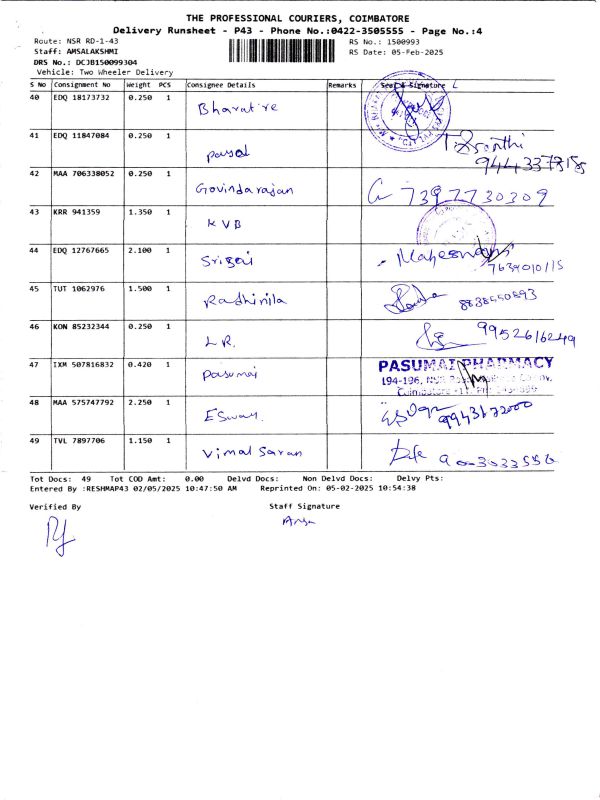 THE PROFESSIONAL COURIERS, COIMBATORE
Delivery Runsheet - P43 - Phone No.:0422-3505555 - Page No.:4
Route: NSR RD-1-43 RS No.: 1500993
Staff: AMSALAKSHMI RS Date: 05-Feb-2025
DRS No.: DCJB150099304
Vehicle: Two Wheeler Delivery
S No Consignment No Weight PCS Consignee Details Remarks Seal & Signature
40 EDQ 18173732 0.250 1 Bharatire
41 EDQ 11847084 0.250 1
9443373185
42 MAA 706338052 0.250 1 Govindarajan 7397730309
43 KRR 941359 1.350 1 KVB
44 EDQ 12767665 2.100 1 Srigai
7639010115
45 TUT 1062976 1.500 1 Radhinila 8838550893
46 KON 85232344 0.250 1 LR. 9952616249
47 IXM 507816832 0.420 1 Pasumai PASUMAI PHARMACY
194-196,
48 MAA 575747792 2.250 1 Eswar. 9943172000
49 TVL 7897706 1.150 1 Vimal Saran
Tot Docs: 49 Tot COD Amt: 0.00 Delvd Docs: Non Delvd Docs: Delvy Pts:
Entered By :RESHMAP43 02/05/2025 10:47:50 AM Reprinted On: 05-02-2025 10:54:38
Verified By Staff Signature